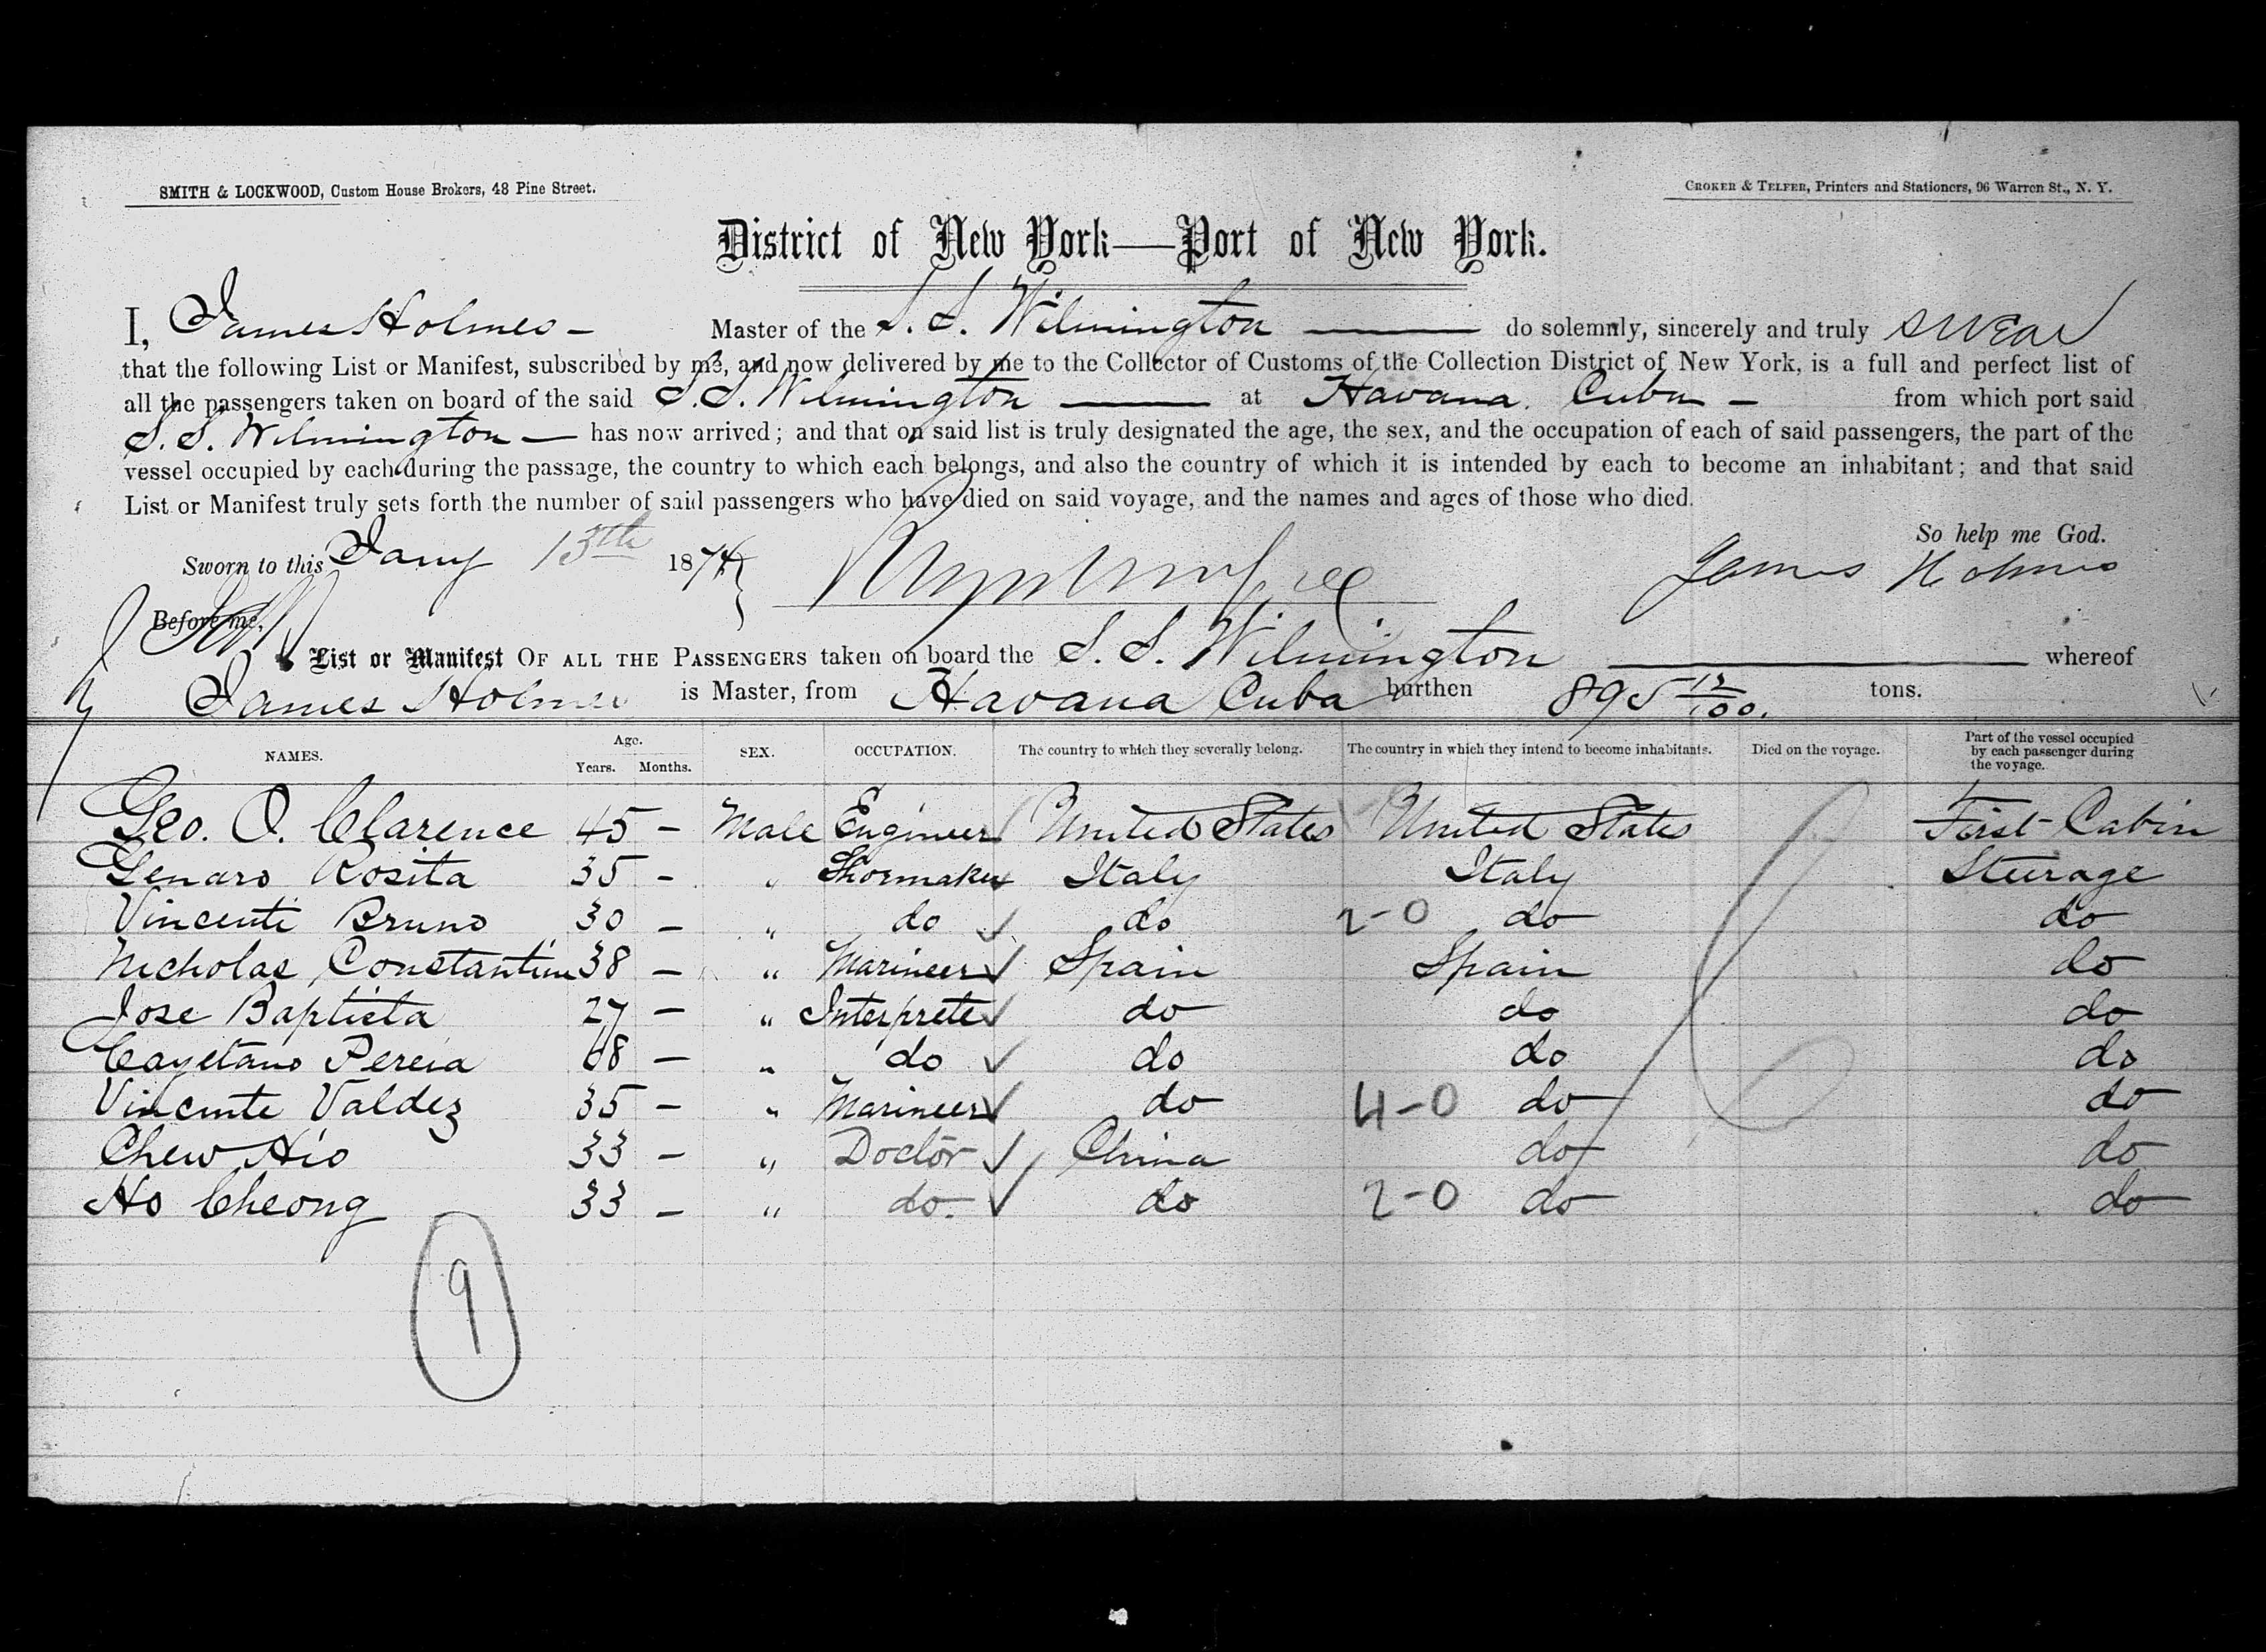 SMITH & LOCKWOOD, Custom House Brokers, 48 Pine Street.
CROKER & TELFER, Printers and Stationers, 96 Warren St., N. Y.
District of New York—Port of New York.
I, James Holmes – Master of the S. S. Wilmington — do solemnly, sincerely and truly swear
that the following List or Manifest, subscribed by me, and now delivered by me to the Collector of Customs of the Collection District of New York, is a full and perfect list of
all the passengers taken on board of the said S. S. Wilmington — at Havana. Cuba – from which port said
S. S. Wilmington — has now arrived; and that on said list is truly designated the age, the sex, and the occupation of each of said passengers, the part of the
vessel occupied by each during the passage, the country to which each belongs, and also the country of which it is intended by each to become an inhabitant; and that said
List or Manifest truly sets forth the number of said passengers who have died on said voyage, and the names and ages of those who died.
So help me God.
Sworn to this Jany 13th 1874 James Holmes
Before me,
List or Manifest OF ALL THE PASSENGERS taken on board the S. S. Wilmington — whereof
James Holmes is Master, from Havana Cuba burthen 895 12/100. tons.
NAMES. Age. Years. Months. SEX. OCCUPATION. The country to which they severally belong. The country in which they intend to become inhabitants. Died on the voyage. Part of the vessel occupied by each passenger during the voyage.
Geo. O. Clarence 45 – Male Engineer United States United States First Cabin
Genaro Rosita 35 – " Shoemaker Italy Italy Steerage
Vincenti Bruno 30 – " do do 2-0 do do
Nicholas Constantine 38 – " Mariner Spain Spain do
Jose Baptista 27 – " Interpreter do do do
Cayetano 68 – " do do do do
Vincente Valdez 35 – " Mariner do 4-0 do do
Chew Hio 33 – " Doctor China do do
Ho Cheong 33 – " do. do 2-0 do do
9